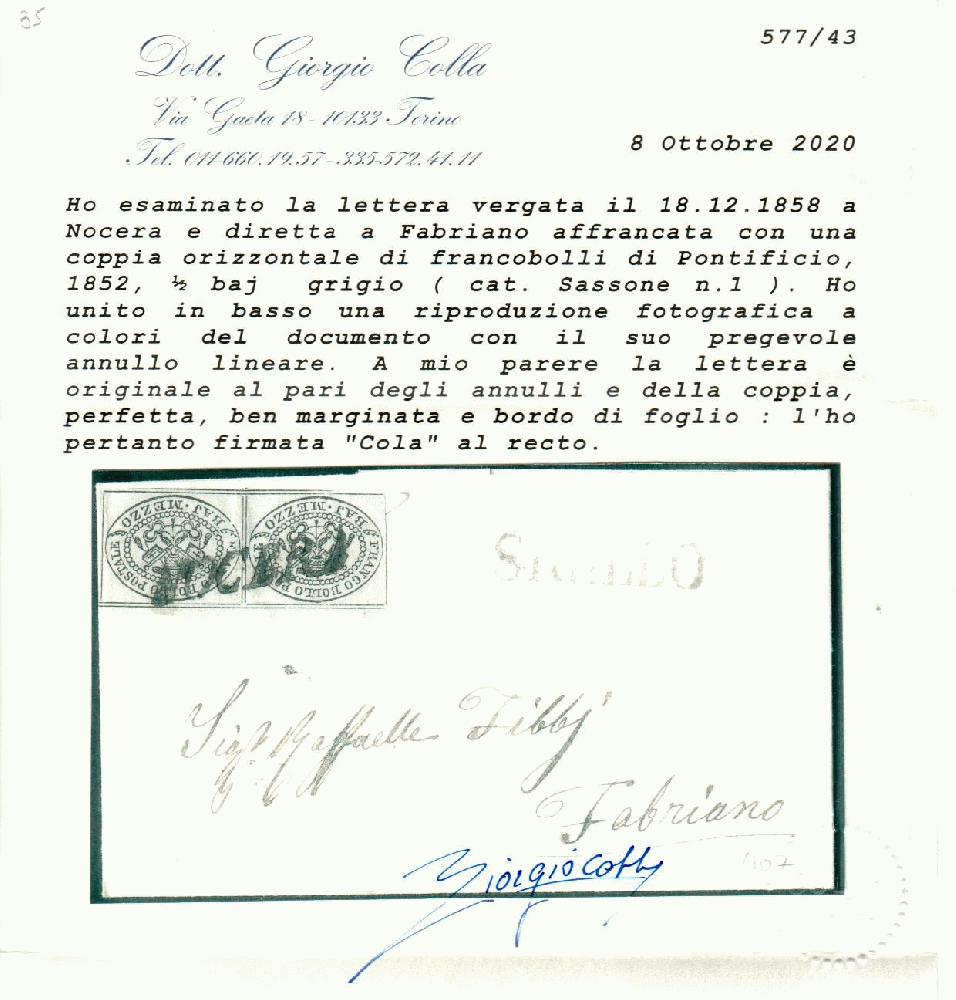 35
577/43
Dott. Giorgio Colla
Via Gaeta 18 - 10133 Torino
Tel. 011-660.19.57 - 335-572.41.11
8 Ottobre 2020
Ho esaminato la lettera vergata il 18.12.1858 a
Nocera e diretta a Fabriano affrancata con una
coppia orizzontale di francobolli di Pontificio,
1852, ½ baj grigio ( cat. Sassone n.1 ). Ho
unito in basso una riproduzione fotografica a
colori del documento con il suo pregevole
annullo lineare. A mio parere la lettera è
originale al pari degli annulli e della coppia,
perfetta, ben marginata e bordo di foglio : l'ho
pertanto firmata "Cola" al recto.
FRANCO BOLLO POSTALE BAJ. MEZZO
FRANCO BOLLO POSTALE BAJ. MEZZO
NOCERA
Raffaelle Fibbj
Fabriano
Giorgio Colla